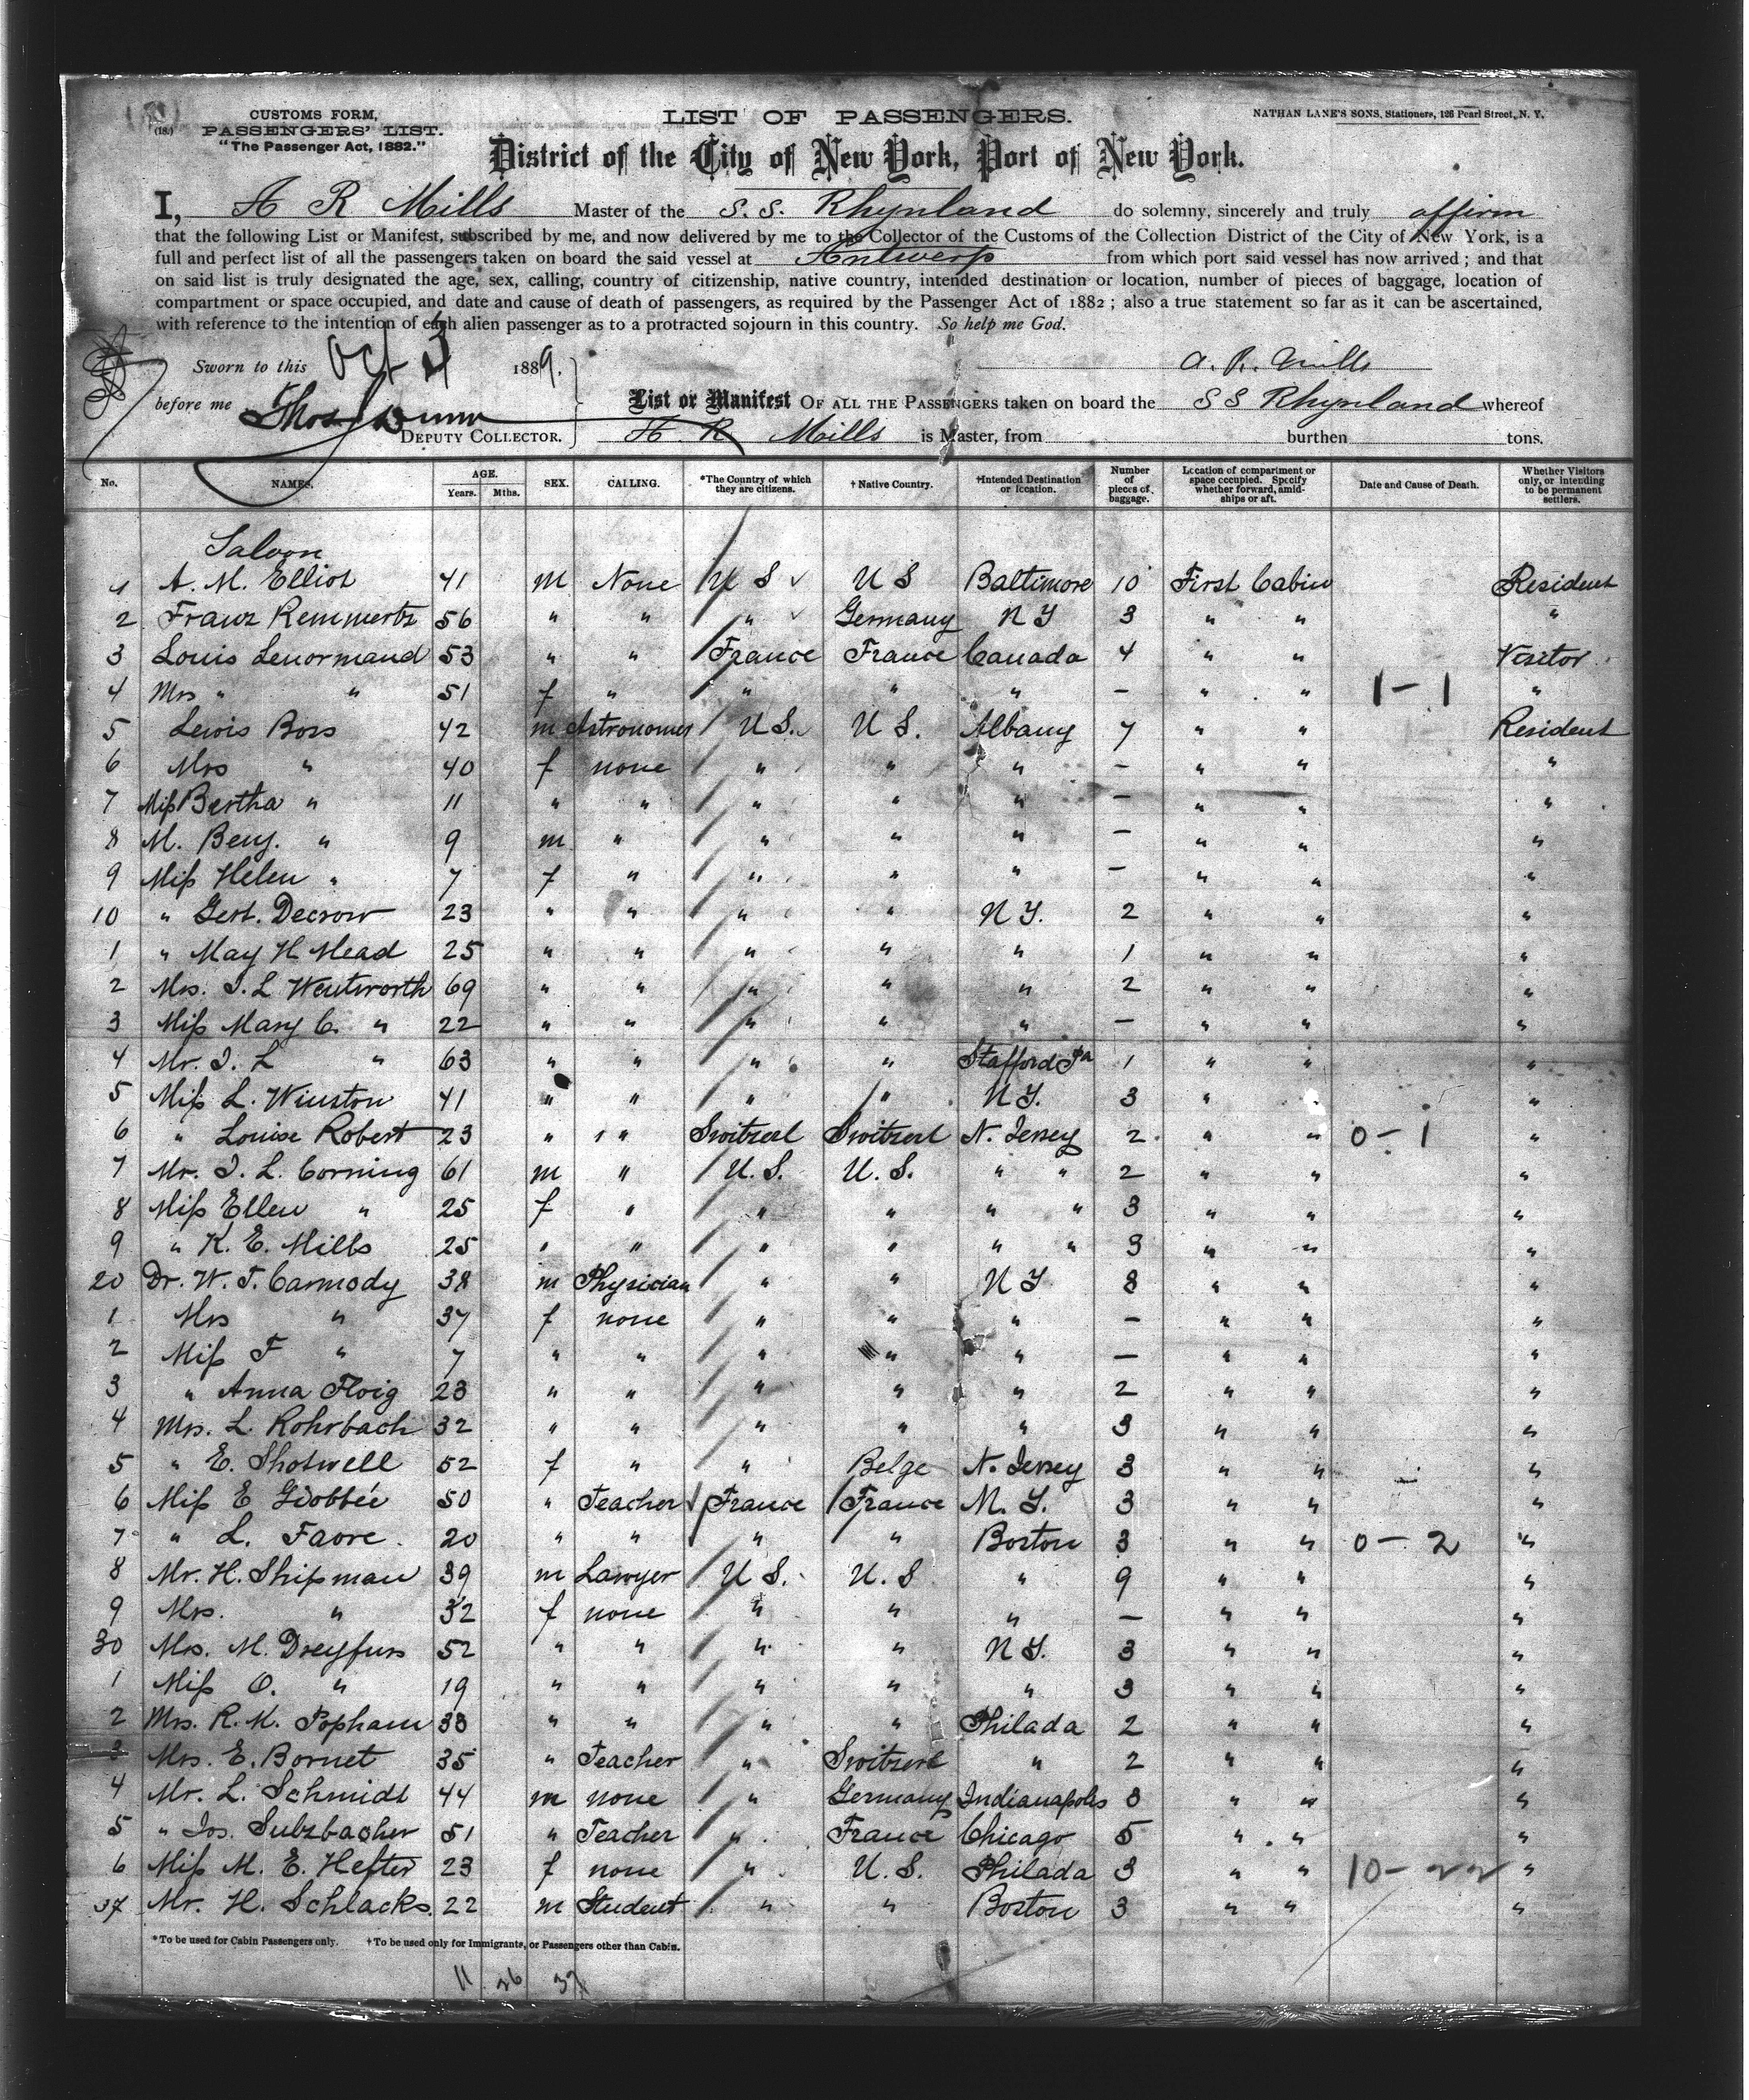 (18.)
CUSTOMS FORM,
PASSENGERS' LIST.
"The Passenger Act, 1882."
LIST OF PASSENGERS.
NATHAN LANE'S SONS, Stationers, 126 Pearl Street, N. Y.
District of the City of New York, Port of New York.
I, A R Mills Master of the S. S. Rhynland do solemny, sincerely and truly affirm
that the following List or Manifest, subscribed by me, and now delivered by me to the Collector of the Customs of the Collection District of the City of New York, is a
full and perfect list of all the passengers taken on board the said vessel at Antwerp from which port said vessel has now arrived; and that
on said list is truly designated the age, sex, calling, country of citizenship, native country, intended destination or location, number of pieces of baggage, location of
compartment or space occupied, and date and cause of death of passengers, as required by the Passenger Act of 1882; also a true statement so far as it can be ascertained,
with reference to the intention of each alien passenger as to a protracted sojourn in this country. So help me God.
Sworn to this Oct 1889.
A. R. Mills
before me Thos
DEPUTY COLLECTOR.
List or Manifest OF ALL THE PASSENGERS taken on board the S S Rhynland whereof
A R Mills is Master, from burthen tons.
No. NAMES. AGE. Years. Mths. SEX. CALLING. *The Country of which they are citizens. †Native Country. †Intended Destination or location. Number of pieces of baggage. Location of compartment or space occupied. Specify whether forward, amidships or aft. Date and Cause of Death. Whether Visitors only, or intending to be permanent settlers.
Saloon
1 A. M. Elliot 41 m None U S U S Baltimore 10 First Cabin Resident
2 Franz Remmertz 56 " " " Germany N Y 3 " " "
3 Louis Lenormand 53 " " France France Canada 4 " " Visitor
4 Mrs " " 51 f " " " " – " " 1–1 "
5 Lewis Boss 42 m Astronomer U S. U S. Albany 7 " " Resident
6 Mrs " 40 f none " " " – " " "
7 Miss Bertha " 11 " " " " " – " " "
8 M. Benj. " 9 m " " " " – " " "
9 Miss Helen " 7 f " " " " – " " "
10 " Gert. Decrow 23 " " " " N Y. 2 " " "
1 " May H Mead 25 " " " " " 1 " " "
2 Mrs. I. L Wentworth 69 " " " " " 2 " " "
3 Miss Mary C. " 22 " " " " " – " " "
4 Mr. I. L " 63 " " " " Stafford 1 " " "
5 Miss L. Winston 41 " " " " N Y. 3 " " "
6 " Louise Robert 23 " " Switzerl Switzerl N. Jersey 2 " " 0–1 "
7 Mr. I. L. Corning 61 m " U. S. U. S. " " 2 " " "
8 Miss Ellen " 25 f " " " " " 3 " " "
9 " K. E. Mills 25 " " " " " " 3 " " "
20 Dr. W. T. Carmody 38 m Physician " " N Y 8 " " "
1 Mrs " 37 f none " " " – " " "
2 Miss F " 7 " " " " " – " " "
3 " Anna Floig 23 " " " " " 2 " " "
4 Mrs. L. Rohrbach 32 " " " " " 3 " " "
5 " E. Shotwell 52 f " " Belge N. Jersey 3 " " "
6 Miss E 50 " Teacher France France N. Y. 3 " " "
7 " L. Favre 20 " " " " Boston 3 " " 0–2 "
8 Mr. H. Shipman 39 m Lawyer U S. U. S " 9 " " "
9 Mrs. " 32 f none " " " – " " "
30 Mrs. M. Dreyfuss 52 " " " " N Y. 3 " " "
1 Miss O. " 19 " " " " " 3 " " "
2 Mrs. R. K. Popham 33 " " " " Philada 2 " " "
3 Mrs. E. Bornet 35 " Teacher " Switzerl " 2 " " "
4 Mr. L. Schmidt 44 m none " Germany Indianapolis 3 " " "
5 " Jos. Sulzbacher 51 " Teacher " France Chicago 5 " " "
6 Miss M. E. Hefter 23 f none " U. S. Philada 3 " " 10–22 "
37 Mr. H. Schlacks. 22 m Student " " Boston 3 " " "
*To be used for Cabin Passengers only. †To be used only for Immigrants, or Passengers other than Cabin.
11 26 37